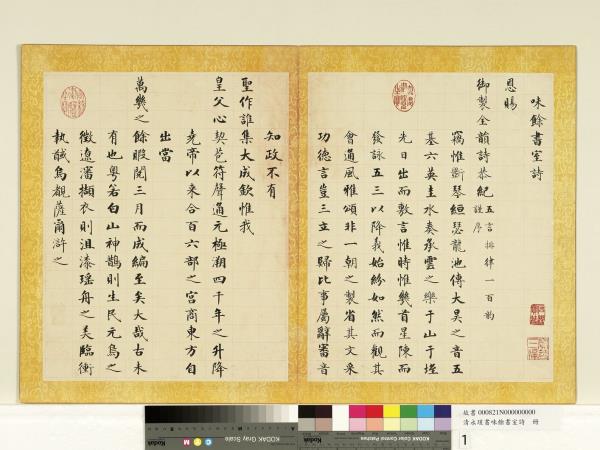 味餘書室詩
恩賜
御製全韻詩恭紀 五言排律一百韵 謹序
竊惟斲琴絙瑟龍池傳大昊之音五
基六英圭水奏承雲之樂于山于陞
先日出而敷言惟時惟幾首星陳而
發詠五三以降義始紛如然而觀其
會通風雅頌非一朝之製省其文采
功德言豈三立之歸比事屬辭審音
知政不有
聖作誰集大成欽惟我
皇父心契苞符聲通元極溯四千年之升降
堯帝以來合百六部之宮商東方自
出當
萬幾之餘暇閱三月而成編至矣大哉古未
有也粵若白山神鵲則生民元鳥之
徵遼瀋擷衣則沮漆瑤舟之美臨衝
執馘烏覩薩爾滸之
KODAK Gray Scale
KODAK Color Control Patches
故書 000821N000000000
清永琰書味餘書室詩 冊
1